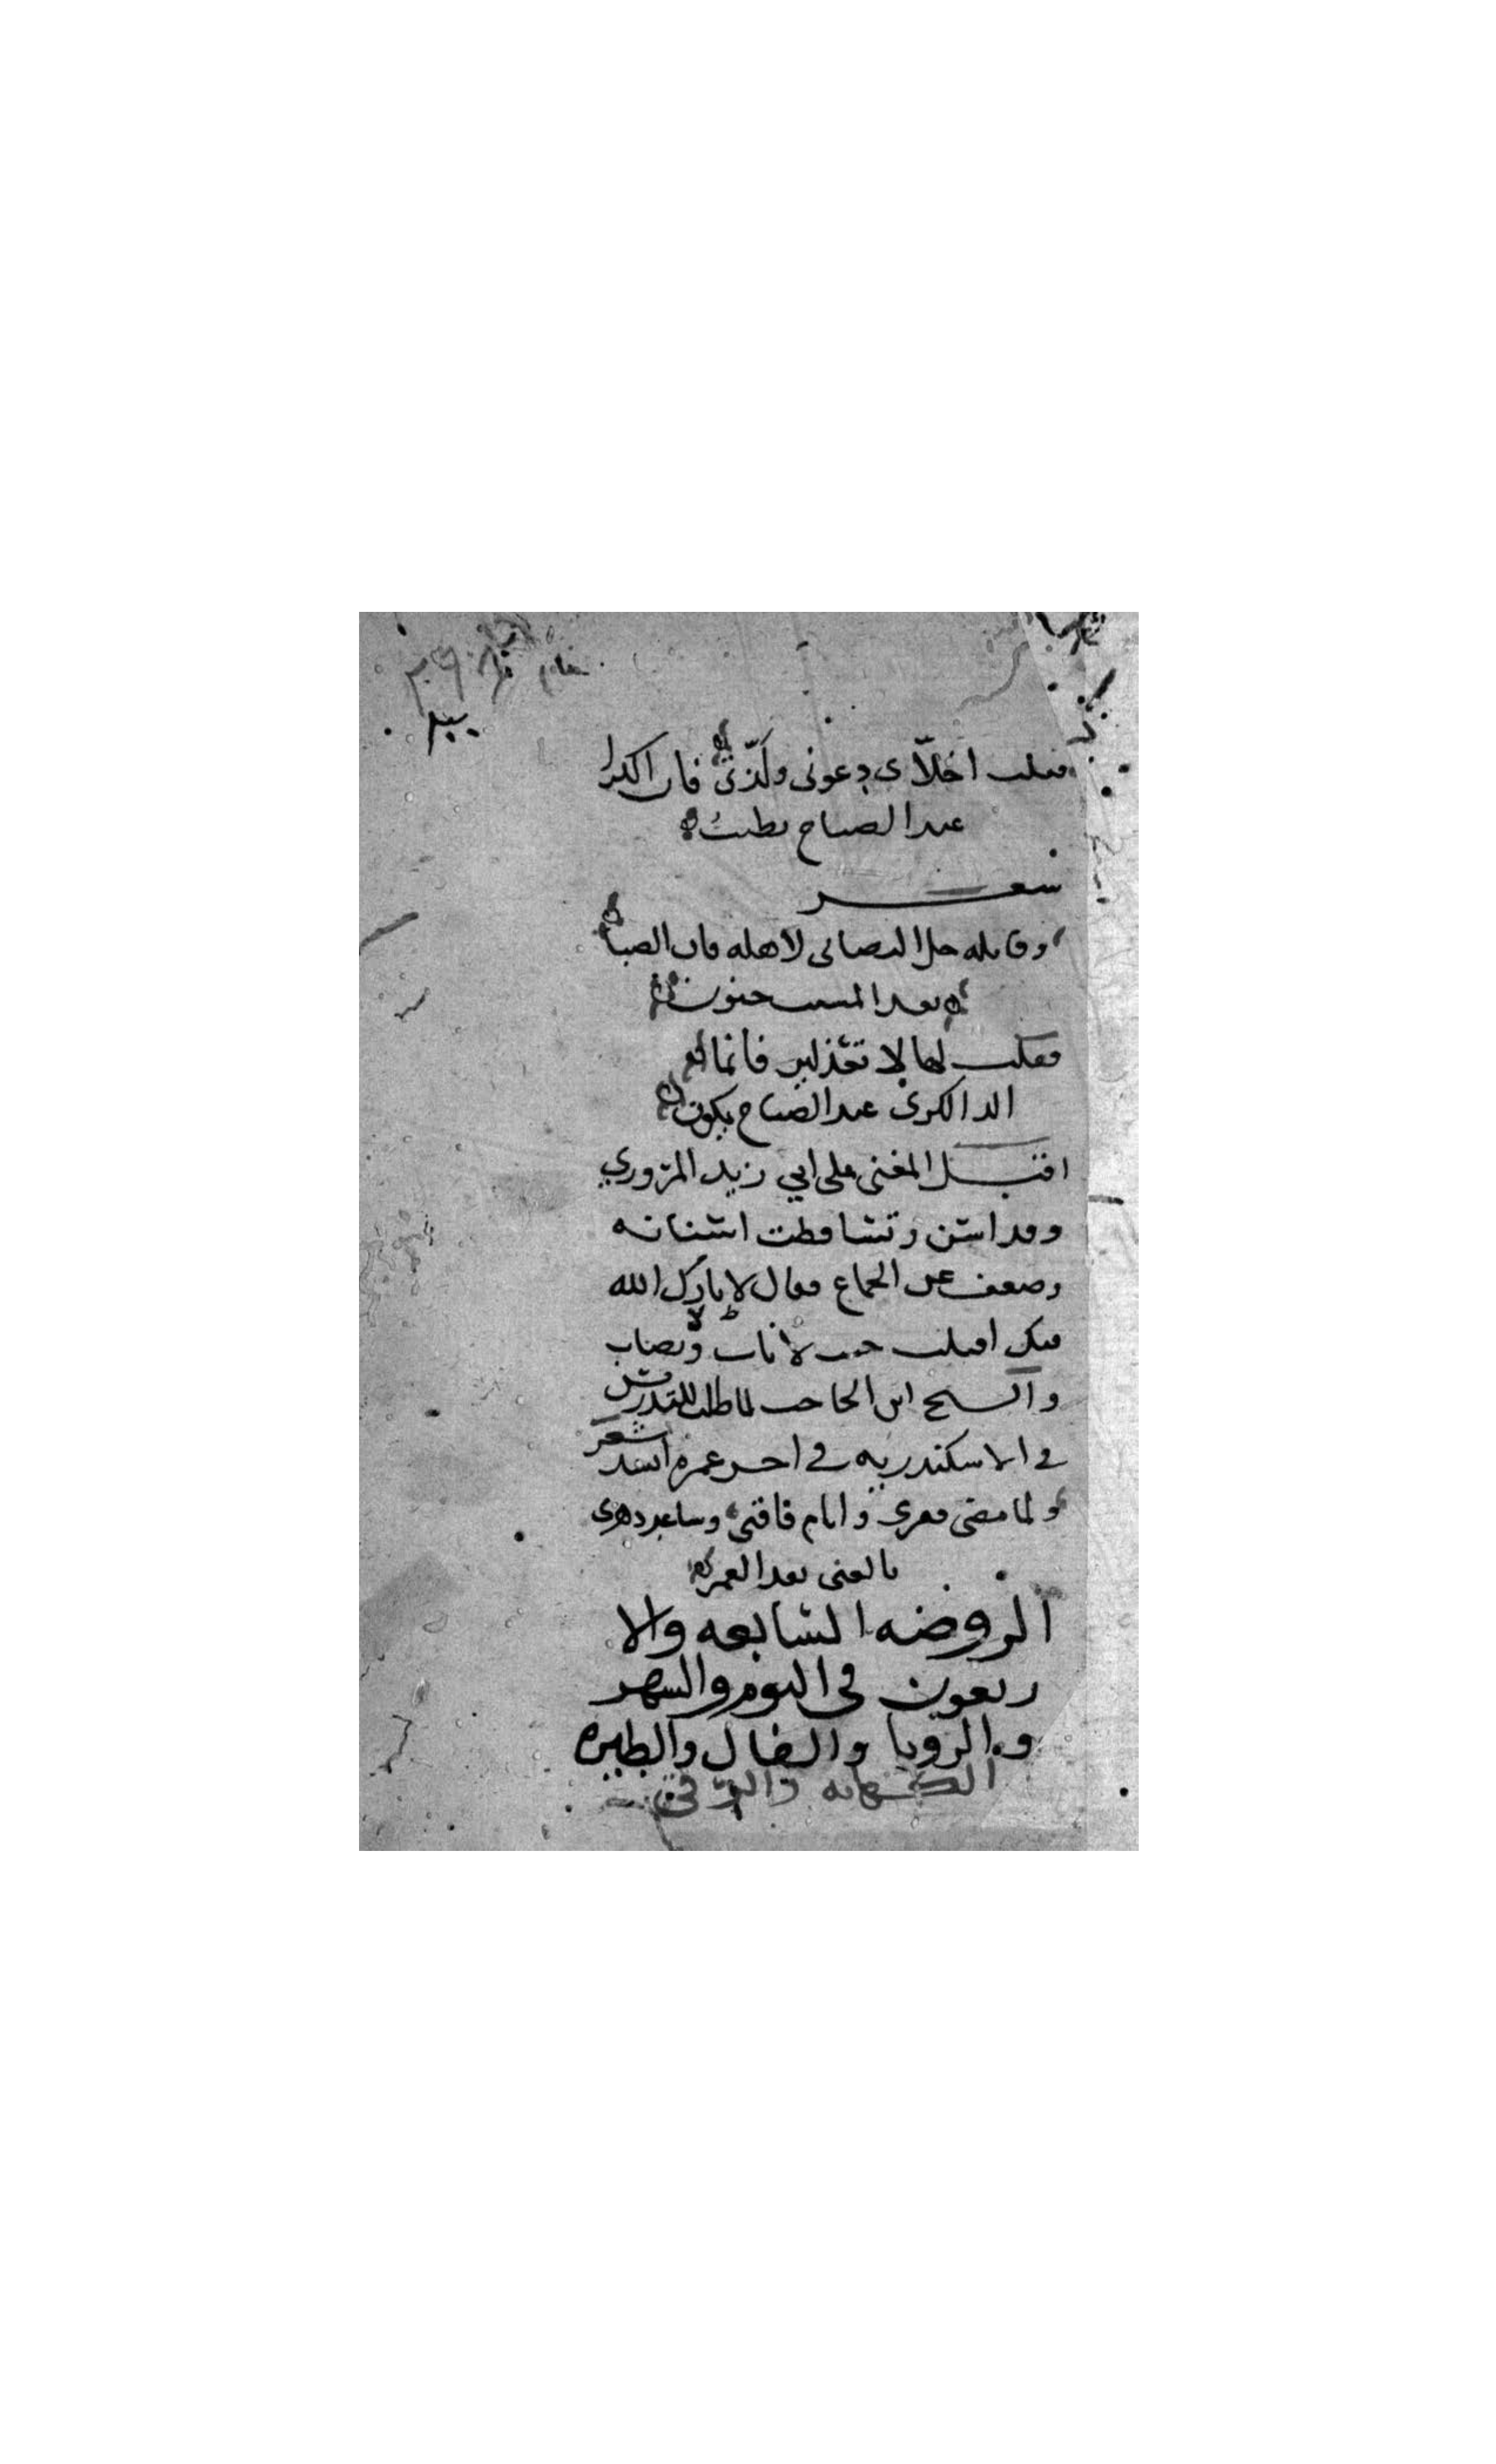 فقلت اخلّاي دعوني ولذّتي فان الكرا
عند الصباح يطيب
شعر
وقايله خل التصابي لاهله فان الصبا
بعد المشيب جنون
فقلت لها لا تعذليني فانما
الد الكرى عند الصباح يكون
اقبل المغنى على ابي زيد المروزي
وقد اسن وتساقطت اسنانه
وضعف عن الجماع فقال لا بارك الله
فيك اقبلت حيث لا ناب ولا نصاب
والشيخ ابن الحاجب لما طلب للتدريس
في الاسكندريه في اخر عمره انشد شعر
ولما مضى فقري وايام فاقتي وساعد دهري
بالغنى بعد العمر
الروضه السابعه والا
ربعون في النوم والسهر
والرويا والفال والطيره
الكهانه والرقى